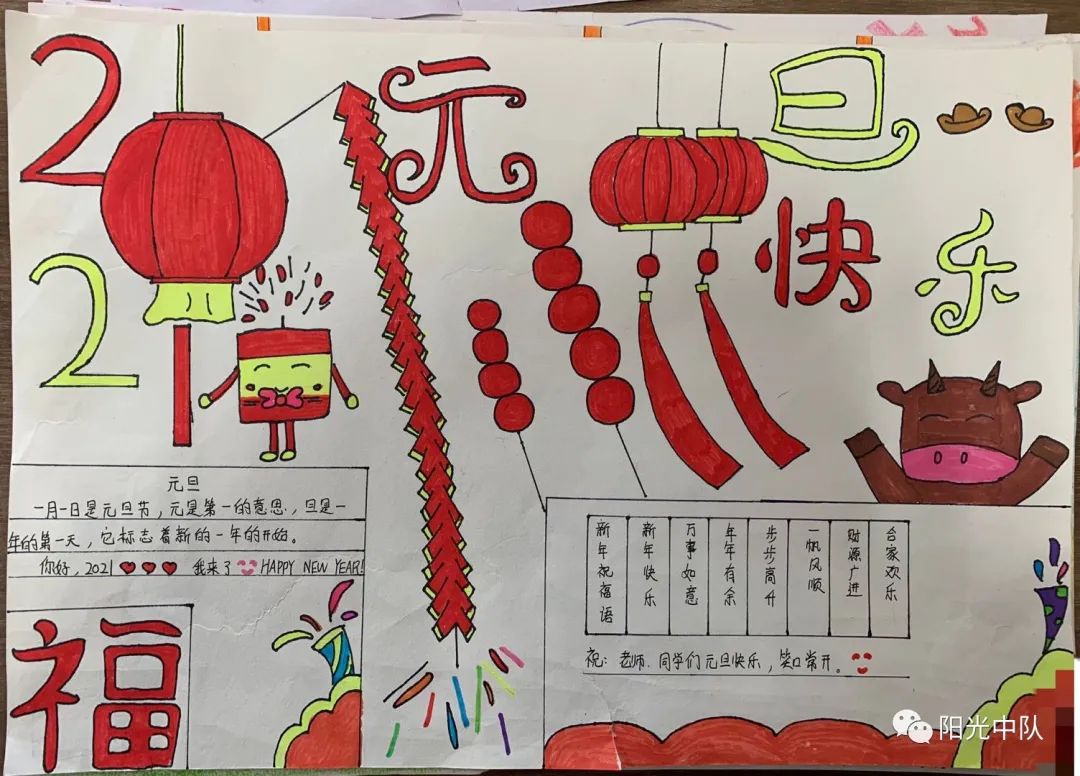 2
2
元旦
快乐
元旦
一月一日是元旦节，元是第一的意思，旦是一
年的第一天，它标志着新的一年的开始。
你好，2021 我来了 HAPPY NEW YEAR!
福
新年祝福语
新年快乐
万事如意
年年有余
步步高升
一帆风顺
财源广进
合家欢乐
祝：老师．同学们元旦快乐，笑口常开。
阳光中队